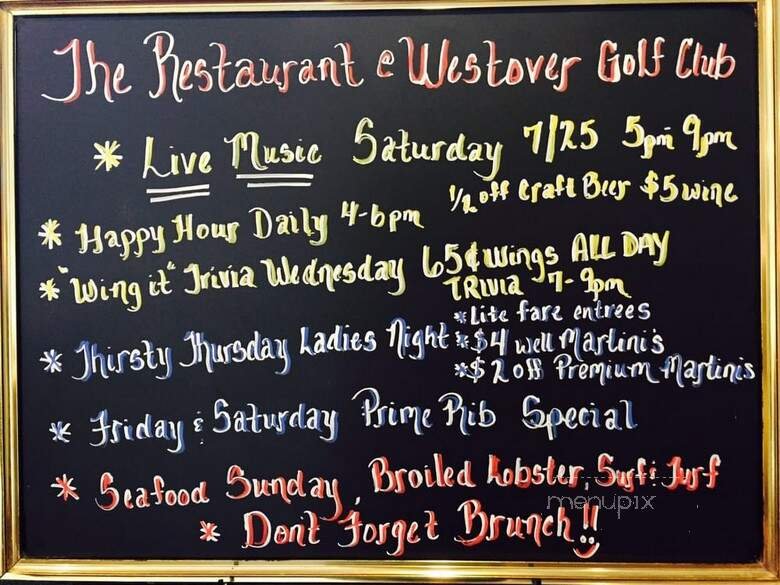 The Restaurant @ Westover Golf Club
* Live Music Saturday 7/25 5pm 9pm
* Happy Hour Daily 4-6pm 1/2 off Craft Beer $5 wine
* "Wing it" Trivia Wednesday 65¢ wings ALL DAY
TRivia 7-9pm
* Thirsty Thursday Ladies Night * Lite fare entrees
* $4 well Martini's
* $2 off Premium Martinis
* Friday & Saturday Prime Rib Special
* Seafood Sunday, Broiled Lobster, Surf & Turf
* Dont Forget Brunch!!
menupix